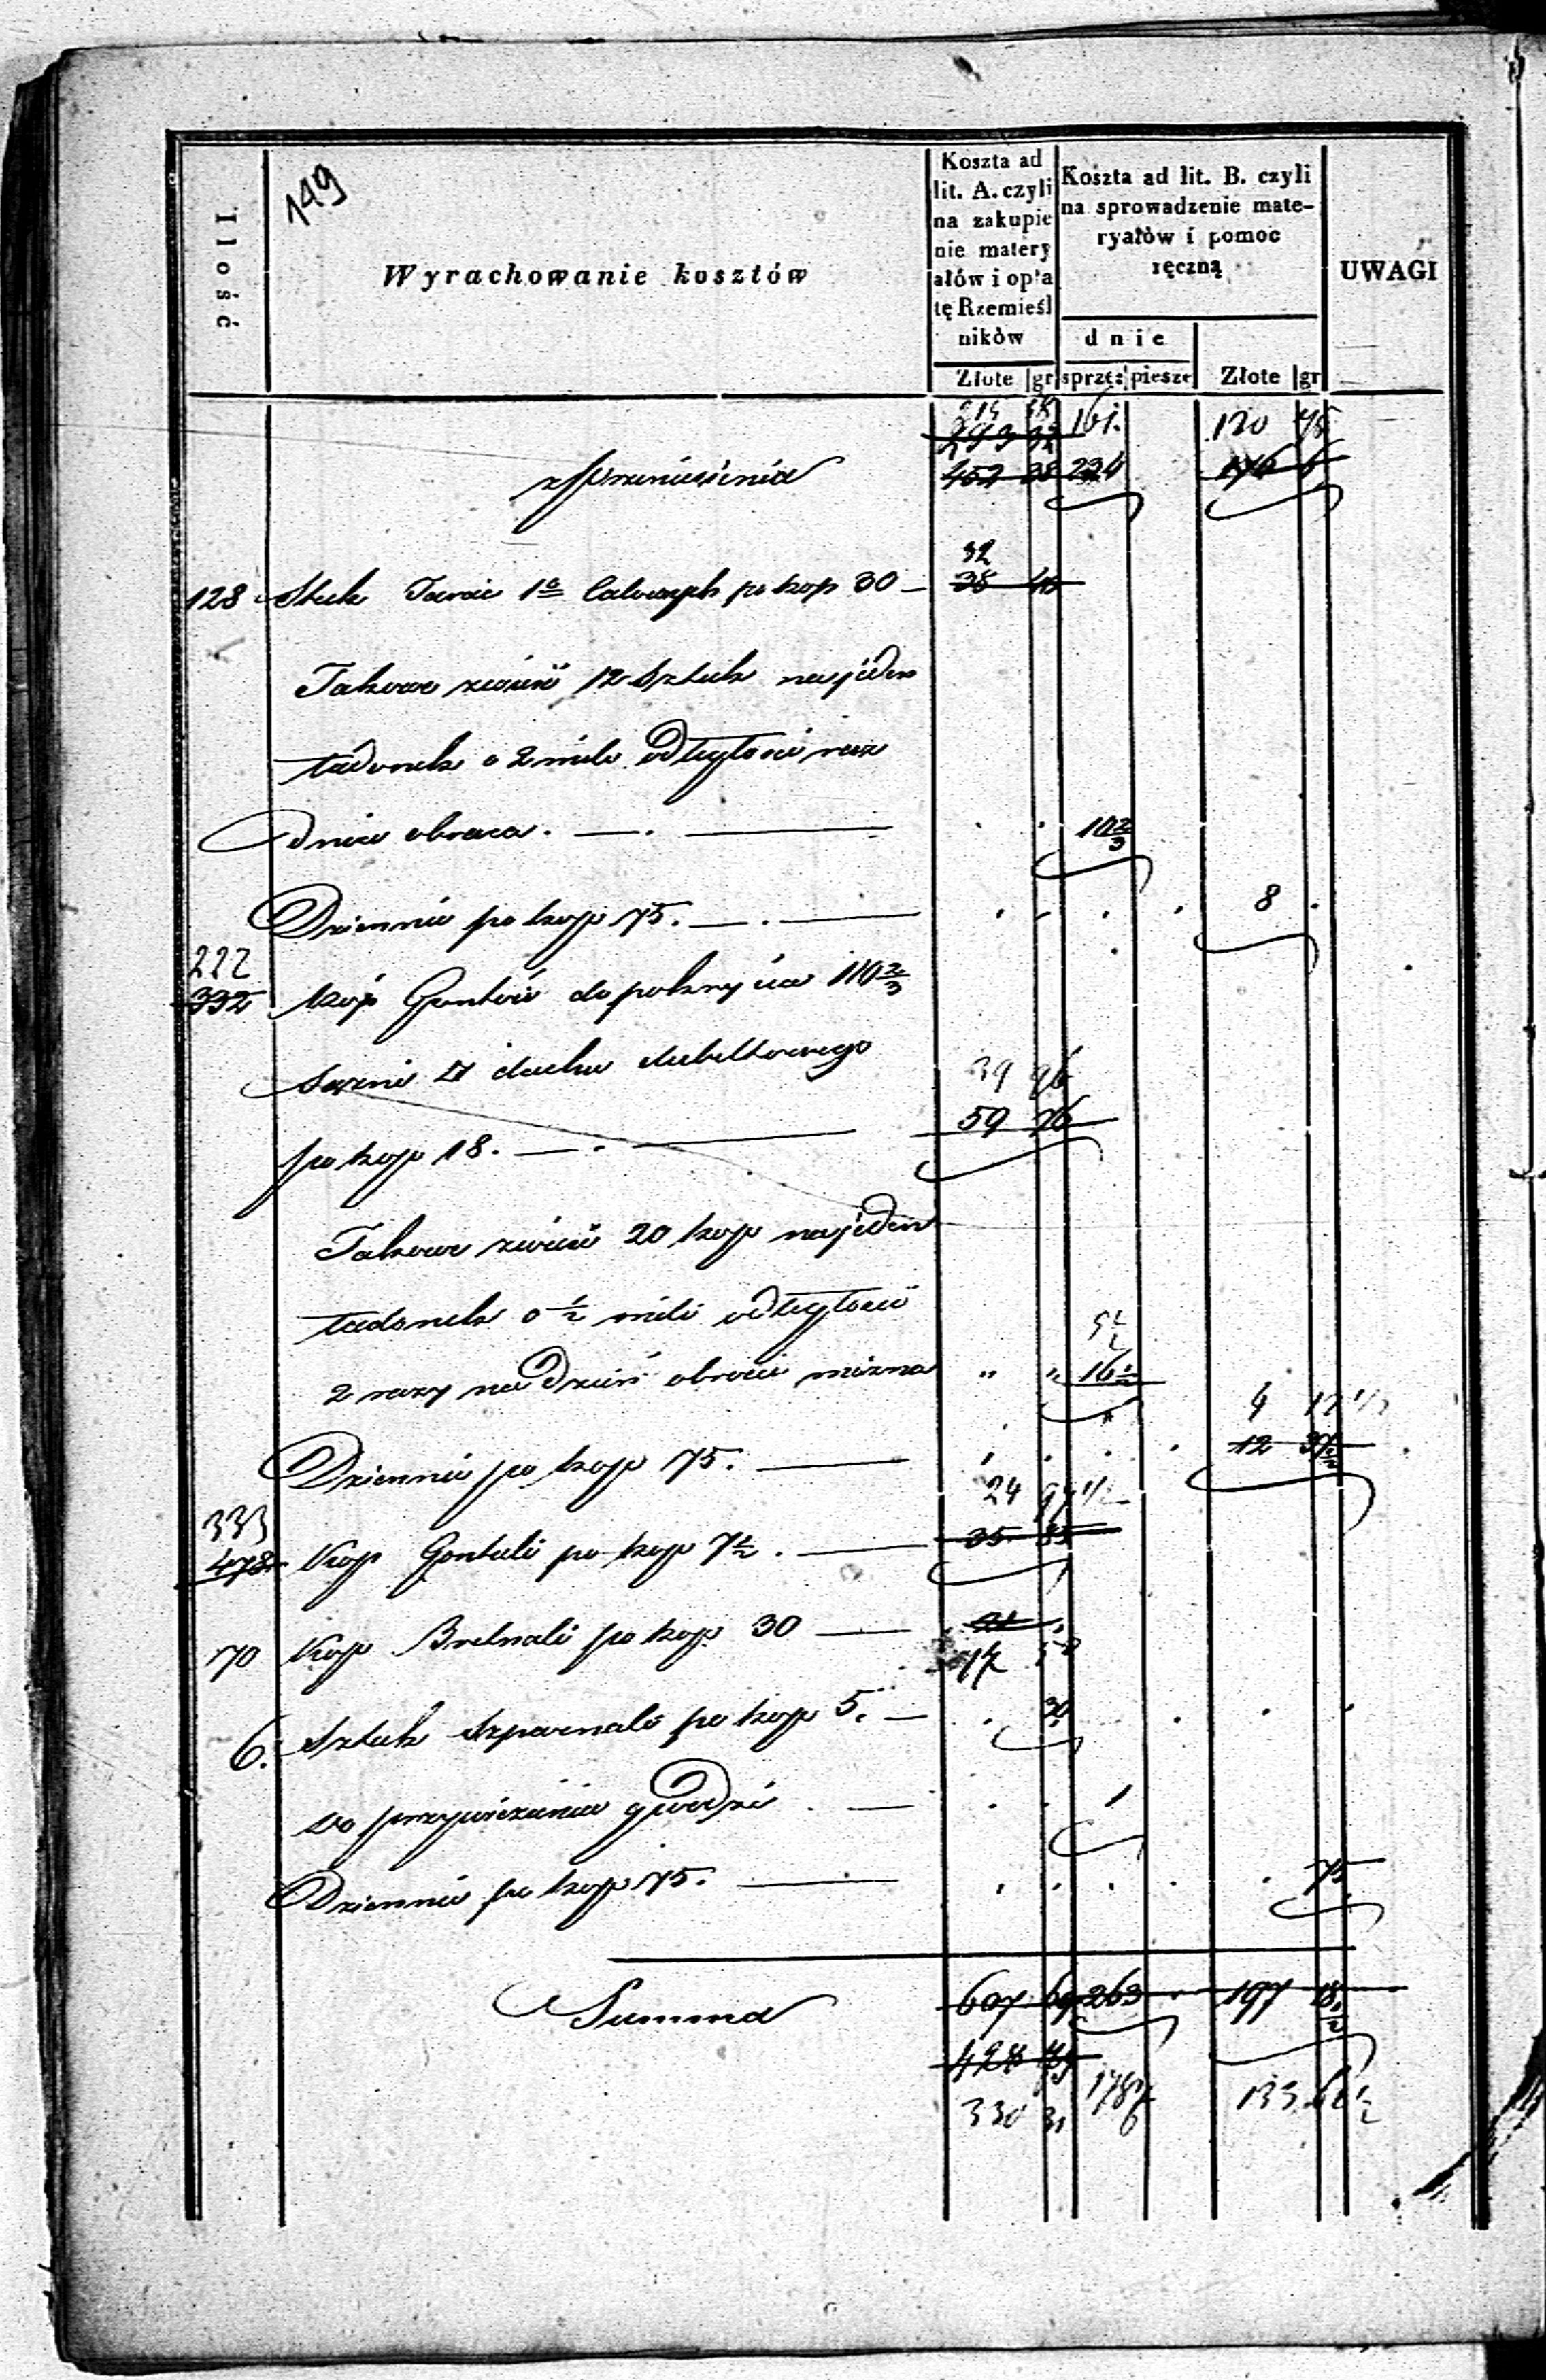 149
Ilość
Wyrachowanie kosztów
Koszta ad
lit. A. czyli
na zakupie
nie matery
ałów i opła
tę Rzemieśl
ników
Złote gr
Koszta ad lit. B. czyli
na sprowadzenie mate-
ryałów i pomoc
ręczną
dnie
sprzę: piesze Złote gr
UWAGI
161. 120 75
z Przeniesienia 452 38 224 176 6
32
128 Sztuk Tarcic 1o Calowych po kop 30 — 38 40
Takowe zwieść 12 Sztuk na jeden
ładunek o 2 mile odległości raz
dnia obraca. — . — 10 2/3
Dziennie po kop 75. — . — 8
222
332 Kóp Gontów do pokrycia 110 2/3
Sążni □ dachu dubeltowego
39 96
po kop 18. — . — 59 76
Takowe zwieść 20 kop na jeden
ładunek o 1/2 mili odległości
5 1/2
2 razy na dzień obrócić można " " 16 1/2
4 12 1/2
Dziennie po kop 75. — 12 37 1/2
24 97 1/2
333
478 Kop Gontali po kop 7 1/2. — 35 85
70 Kop Bretnali po kop 30 — 21
17 50
6. Sztuk Szparnali po kop 5. — 30
do przywiezienia gwoździ — 1
Dziennie po kop 75. — 75
Summa 607 69 263 197 18 1/2
428
330 31 178 133 62 1/2